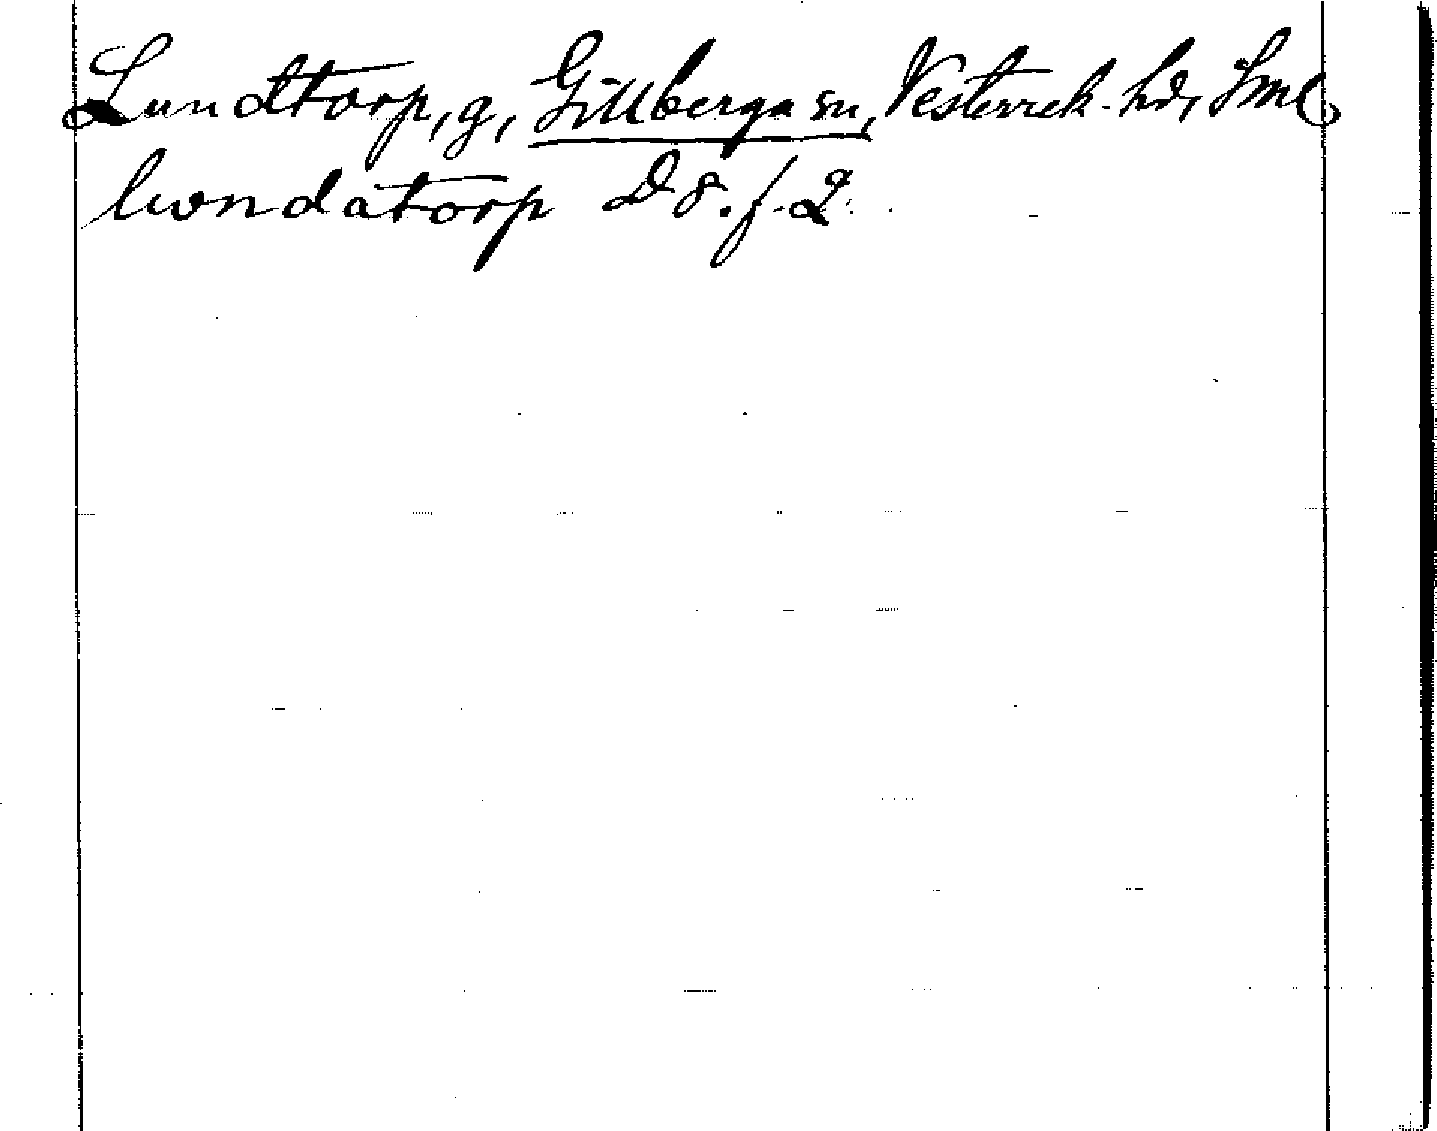 Lundtorp, g, Gillberga sn, Vesterrek. hd, Sml
lwndatorp D 8. f. 2.